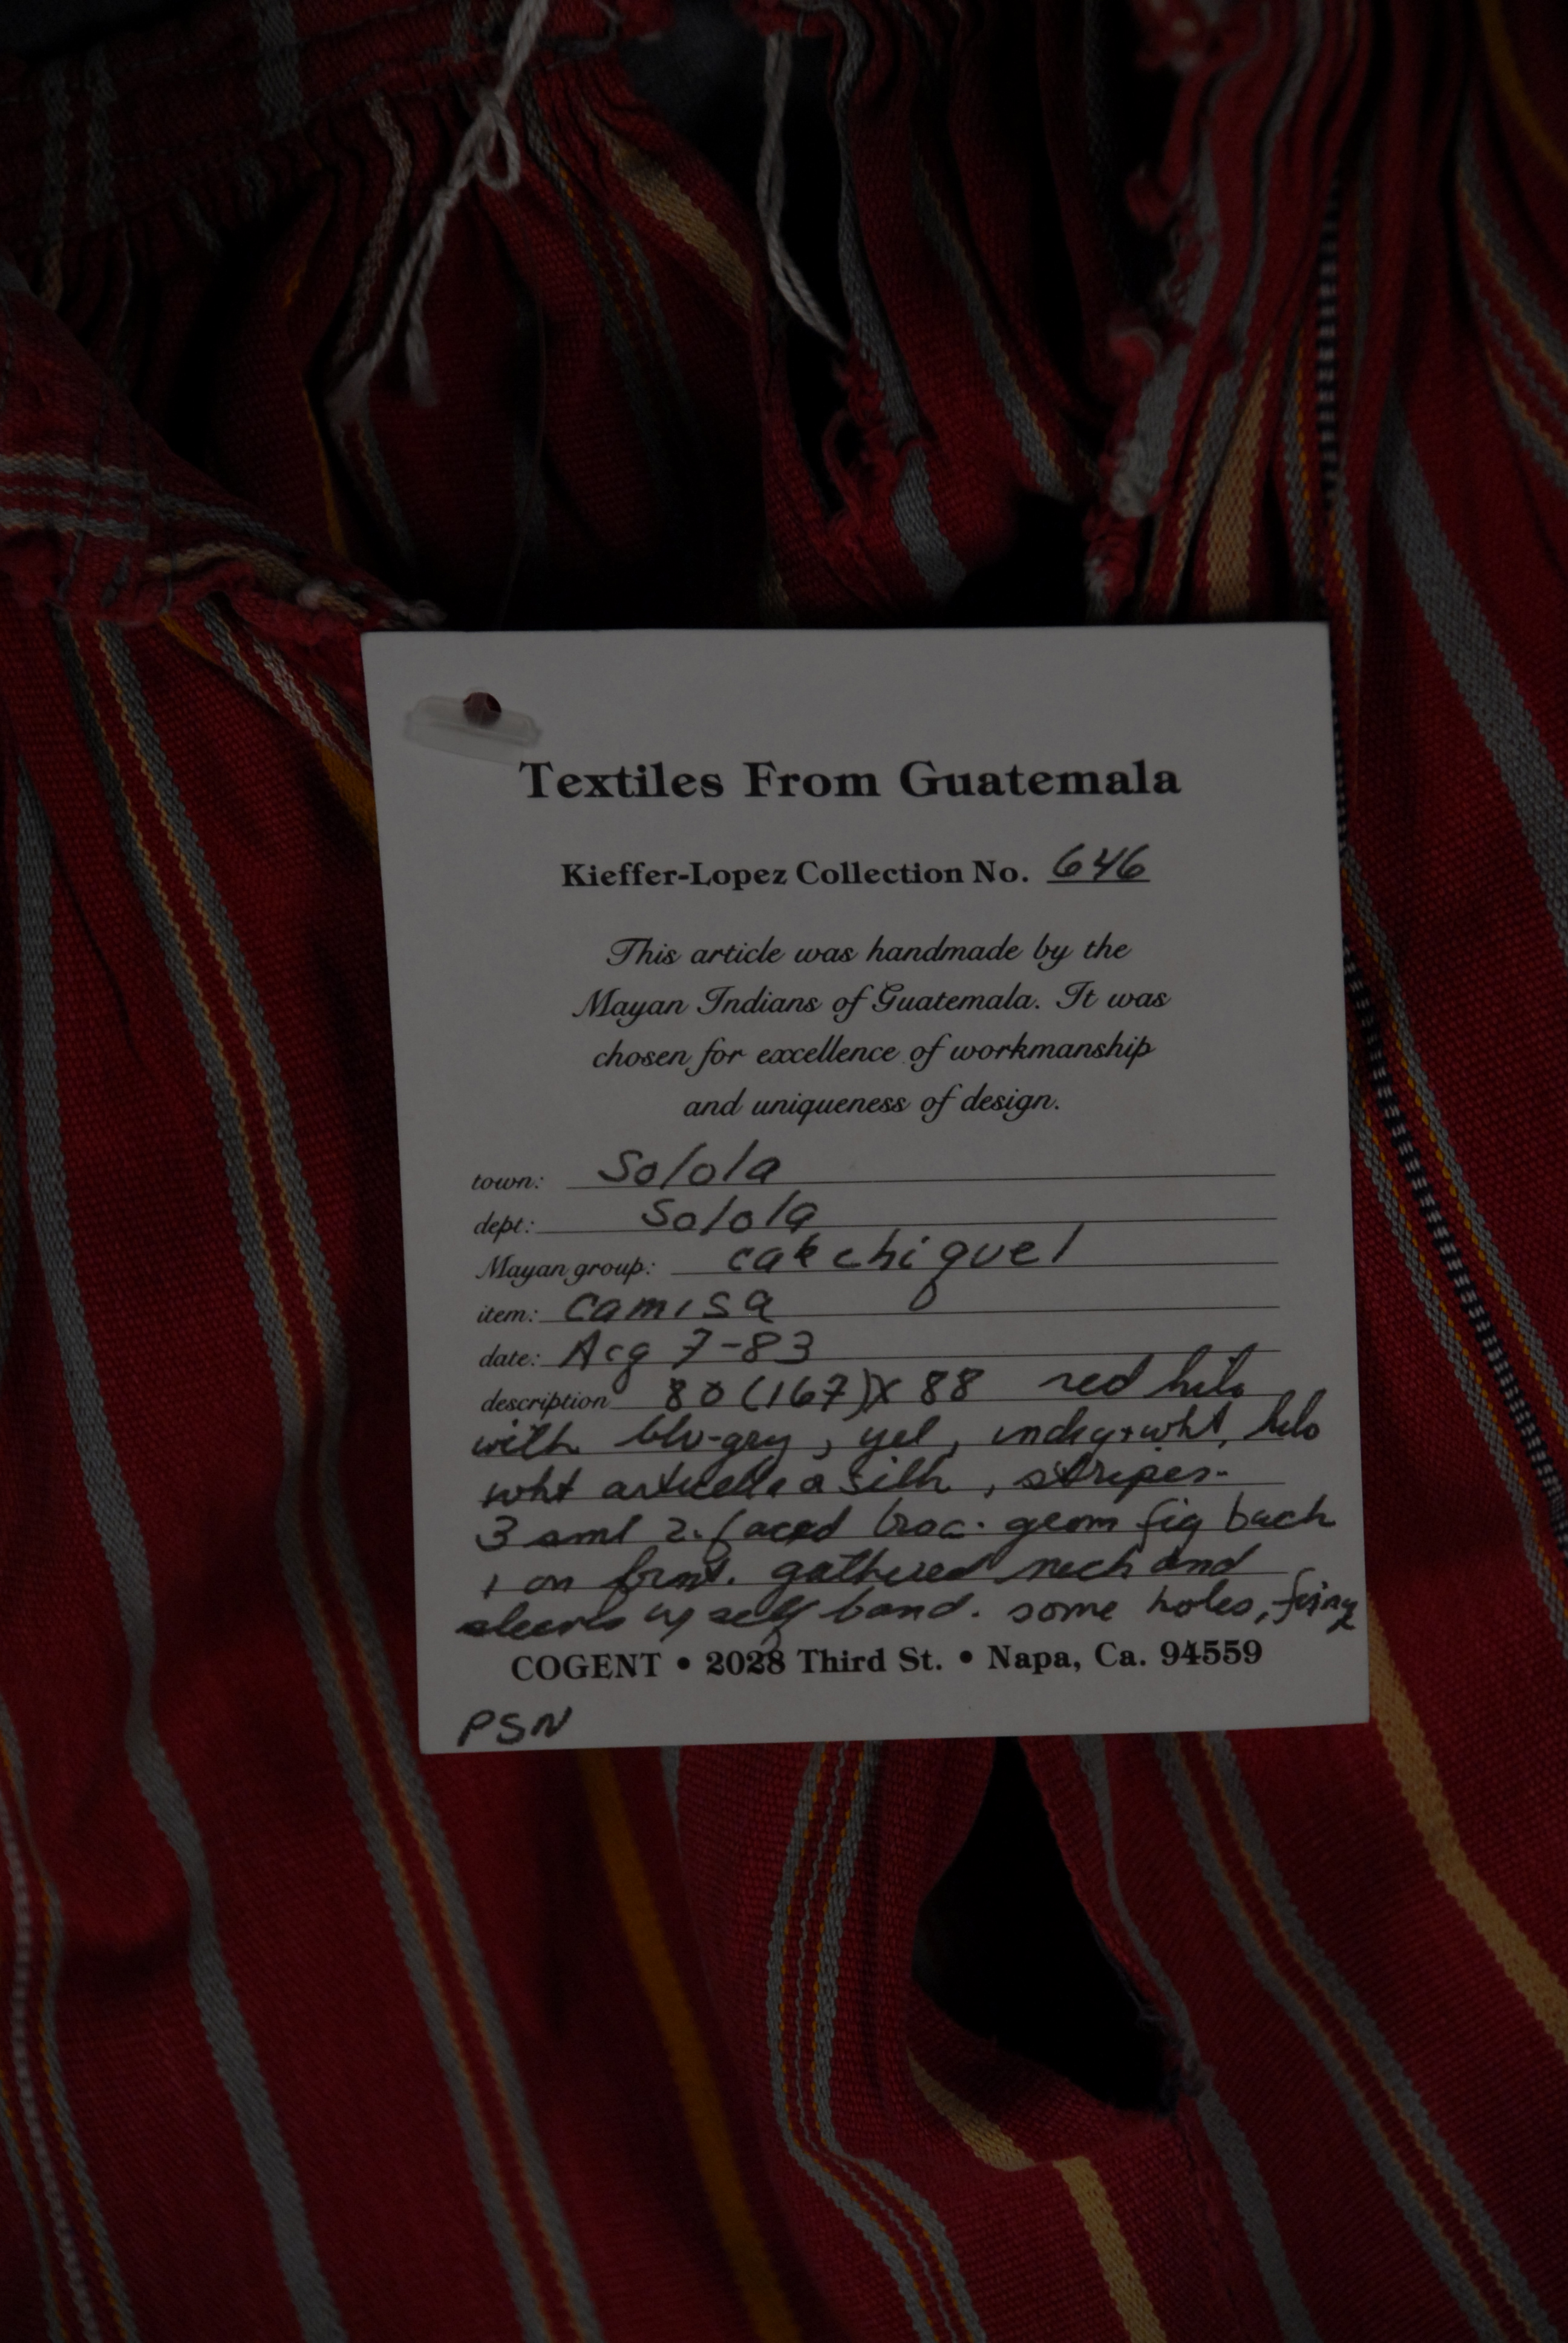 Textiles From Guatemala
Kieffer-Lopez Collection No. 646
This article was handmade by the
Mayan Indians of Guatemala. It was
chosen for excellence of workmanship
and uniqueness of design.
town: Solola
dept: Solola
Mayan group: cakchiquel
item: camisa
date: Acq 7-83
description 80 (167) X 88 red hilo
with blu-gry, yel, indig + wht, hilo
wht silk, stripes.
3 sml 2-faced broc. geom fig back
1 on front. gathered neck and
sleeves w/ self band. some holes,
COGENT • 2028 Third St. • Napa, Ca. 94559
PSN